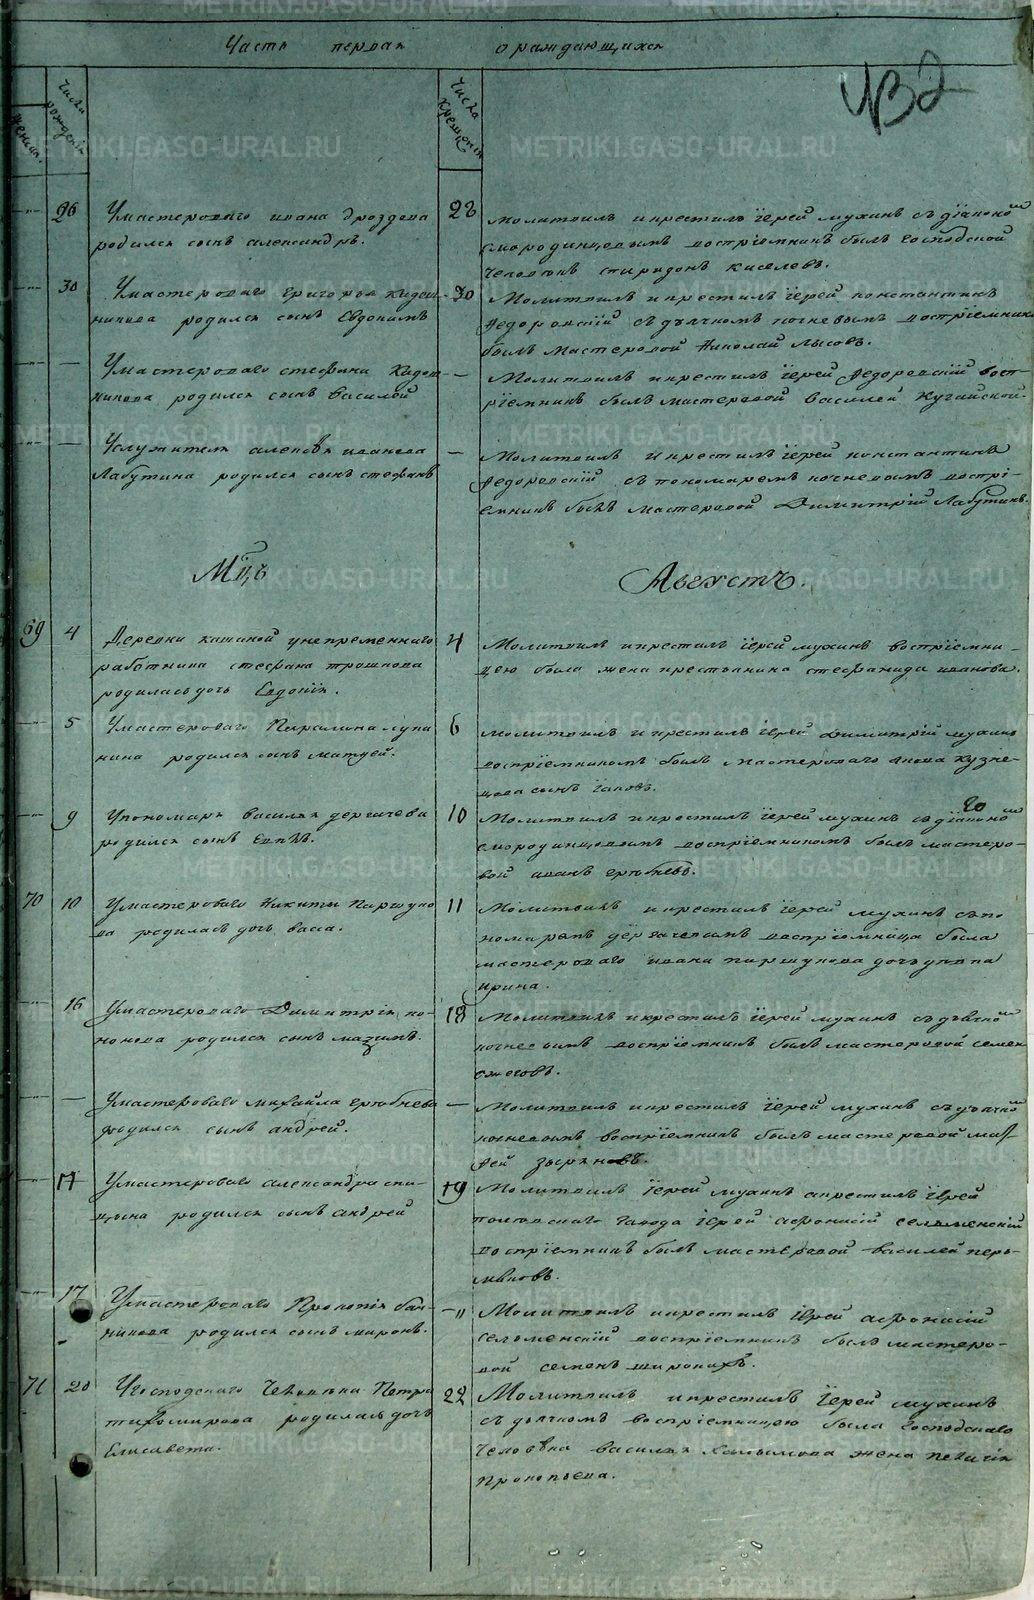 Часть первая о рождающихся
432
женска.
Числа рожденія
Числа крещенія
26 У мастероваго ивана дроздова
родился сынъ александръ.
28 Молитвилъ и крестилъ іерей мухинъ съ діаконо
смородинцевымъ воспріемникъ былъ господской
человѣкъ спиридонъ киселевъ.
30 У мастероваго григорья
родился сынъ Евдокимъ
30 Молитвилъ и крестилъ іерей константинъ
Федоровскій съ дьячкомъ кочневымъ воспріемник
былъ мастеровой Николай лысовъ.
У мастероваго стефана
родился сынъ василей
Молитвилъ и крестилъ іерей Федоровскій восп-
ріемникъ былъ мастеровой василей
У служителя алексѣя иванова
Лабутина родился сынъ стефанъ
Молитвилъ и крестилъ іерей константинъ
Федоровскій съ пономаремъ кочневымъ воспрі-
емникъ былъ мастеровой Димитрій Лабутинъ.
Мцъ Августъ.
69 4 Деревни кашиной у непременнаго
работника стефана трошкова
родилась дочь Евдокія.
4 Молитвилъ и крестилъ іерей мухинъ воспріемни-
цею была жена крестьянина стефанида иванова.
5 У мастероваго
родился сынъ матфей.
6 Молитвилъ и крестилъ іерей Димитрій мухинъ
воспріемникомъ былъ мастероваго якова кузне-
цова сынъ іаковъ.
9 У пономаря василья дергачева
родился сынъ
10 Молитвилъ и крестилъ іерей мухинъ съ діаконо
смородинцовымъ воспріемникомъ былъ мастеро-
вой иванъ
70 10 У мастероваго Никиты Паршуко
ва родилась дочь васса.
11 Молитвилъ и крестилъ іерей мухинъ съ по
номаремъ дергачевымъ воспріемница была
мастероваго ивана паршукова дочь
ирина.
16 У мастероваго Димитрія ко-
нонова родился сынъ максимъ.
18 Молитвилъ и крестилъ іерей мухинъ съ дьячко
кочневымъ воспріемникъ былъ мастеровой семен
ожеговъ.
У мастероваго михайла
родился сынъ андрей.
Молитвилъ и крестилъ іерей мухинъ съ дьячко
кочневымъ воспріемникъ былъ мастеровой мат
фей зыряновъ.
17 У мастероваго александра спи-
цына родился сынъ андрей
19 Молитвилъ іерей мухинъ а крестилъ іерей
полевскаго завода іерей афонасій селеменскій
воспріемникъ былъ мастеровой василей перь-
мяковъ.
17 У мастероваго Прокопія бан-
никова родился сынъ миронъ.
" Молитвилъ и крестилъ іерей афонасій
селеменскій воспріемникъ былъ мастеро-
вой семенъ широкихъ.
71 20 У господскаго Человѣка Петра
тихомирова родилась дочь
Елисавета.
22 Молитвилъ и крестилъ іерей мухинъ
съ дьячкомъ воспріемницею была господскаго
Человѣка василья жена
Прокопьева.
METRIKI.GASO-URAL.RU